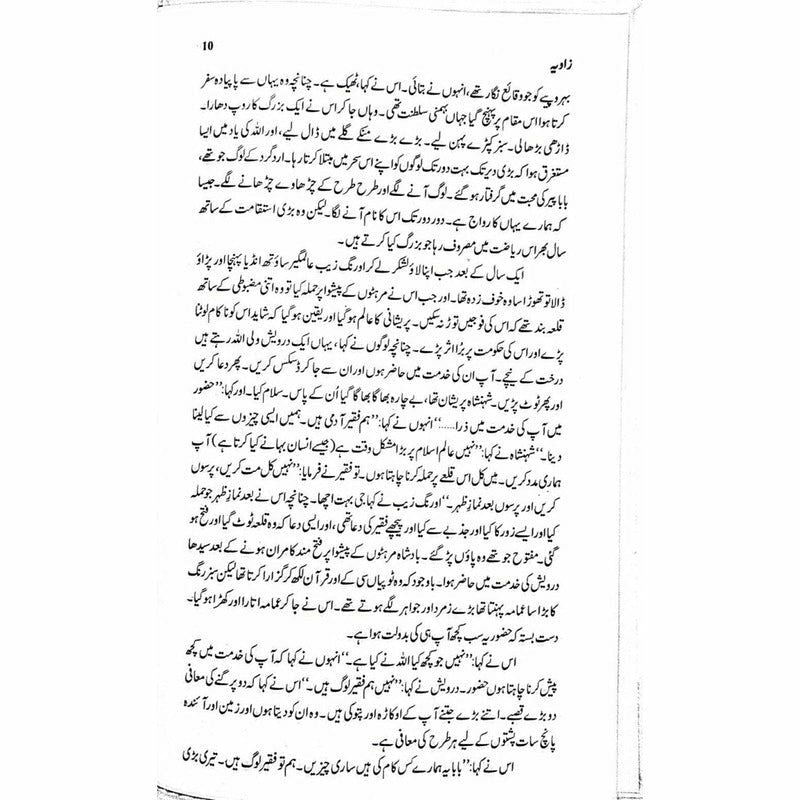 زاویہ
10
بہروپیے کو جو وقائع نگار تھے، انہوں نے بتائی۔ اس نے کہا، ٹھیک ہے۔ چنانچہ وہ یہاں سے پاپیادہ سفر
کرتا ہوا اس مقام پر پہنچ گیا جہاں بہمنی سلطنت تھی۔ وہاں جا کر اس نے ایک بزرگ کا روپ دھارا۔
ڈاڑھی بڑھا لی۔ سبز کپڑے پہن لیے۔ بڑے بڑے منکے گلے میں ڈال لیے، اور اللہ کی یاد میں ایسا
مستغرق ہوا کہ بڑی دیر تک بہت دور تک لوگوں کو اپنے اس سحر میں مبتلا کرتا رہا۔ اردگرد کے لوگ جو تھے،
بابا پیر کی محبت میں گرفتار ہو گئے۔ لوگ آنے لگے اور طرح طرح کے چڑھاوے چڑھانے لگے۔ جیسا
کہ ہمارے یہاں کا رواج ہے۔ دور دور تک اس کا نام آنے لگا۔ لیکن وہ بڑی استقامت کے ساتھ
سال بھر اس ریاضت میں مصروف رہا جو بزرگ کیا کرتے ہیں۔
ایک سال کے بعد جب اپنا لاؤ لشکر لے کر اورنگ زیب عالمگیر ساؤتھ انڈیا پہنچا اور پڑاؤ
ڈالا تو تھوڑا سا وہ خوف زدہ تھا۔ اور جب اس نے مرہٹوں کے پیشوا پر حملہ کیا تو وہ اتنی مضبوطی کے ساتھ
قلعہ بند تھے کہ اس کی فوجیں توڑ نہ سکیں۔ پریشانی کا عالم ہو گیا اور یقین ہو گیا کہ شاید اس کو ناکام لوٹنا
پڑے اور اس کی حکومت پر بُرا اثر پڑے۔ چنانچہ لوگوں نے کہا، یہاں ایک درویش ولی اللہ رہتے ہیں
درخت کے نیچے۔ آپ ان کی خدمت میں حاضر ہوں اور ان سے جا کر ڈسکس کریں۔ پھر دعا کریں
اور پھر ٹوٹ پڑیں۔ شہنشاہ پریشان تھا، بے چارہ بھاگا بھاگا گیا اُن کے پاس۔ سلام کیا۔ اور کہا: ’’حضور
میں آپ کی خدمت میں ذرا.....‘‘ انہوں نے کہا: ’’ہم فقیر آدمی ہیں۔ ہمیں ایسی چیزوں سے کیا لینا
دینا۔‘‘ شہنشاہ نے کہا: ’’نہیں عالم اسلام پر بڑا مشکل وقت ہے (جیسے انسان بہانے کیا کرتا ہے) آپ
ہماری مدد کریں۔ میں کل اس قلعے پر حملہ کرنا چاہتا ہوں۔ تو فقیر نے فرمایا: ’’نہیں کل مت کریں، پرسوں
کریں اور پرسوں بعد نماز ظہر۔‘‘ اورنگ زیب نے کہا جی بہت اچھا۔ چنانچہ اس نے بعد نماز ظہر جو حملہ
کیا اور ایسے زور کا کیا اور جذبے سے کیا اور پیچھے فقیر کی دعا تھی، اور ایسی دعا کہ وہ قلعہ ٹوٹ گیا اور فتح ہو
گئی۔ مفتوح جو تھے وہ پاؤں پڑ گئے۔ بادشاہ مرہٹوں کے پیشوا پر فتح مند کامران ہونے کے بعد سیدھا
درویش کی خدمت میں حاضر ہوا۔ باوجود کہ وہ ٹوپیاں سی کے اور قرآن لکھ کر گزارا کرتا تھا لیکن سبز رنگ
کا بڑا سا عمامہ پہنتا تھا بڑے زمرد اور جواہر لگے ہوتے تھے۔ اس نے جا کر عمامہ اتارا اور کھڑا ہو گیا۔
دست بستہ کہ حضور یہ سب کچھ آپ ہی کی بدولت ہوا ہے۔
اس نے کہا: ’’نہیں جو کچھ کیا اللہ نے کیا ہے۔‘‘ انہوں نے کہا کہ آپ کی خدمت میں کچھ
پیش کرنا چاہتا ہوں حضور۔ درویش نے کہا: ’’نہیں ہم فقیر لوگ ہیں۔‘‘ اس نے کہا کہ دو پرگنے کی معافی
دو بڑے قصبے۔ اتنے بڑے جتنے آپ کے اوکاڑہ اور پتوکی ہیں۔ وہ ان کو دیتا ہوں اور زمین اور آئندہ
پانچ سات پشتوں کے لیے ہر طرح کی معافی ہے۔
اس نے کہا: ’’بابا یہ ہمارے کس کام کی ہیں ساری چیزیں۔ ہم تو فقیر لوگ ہیں۔ تیری بڑی